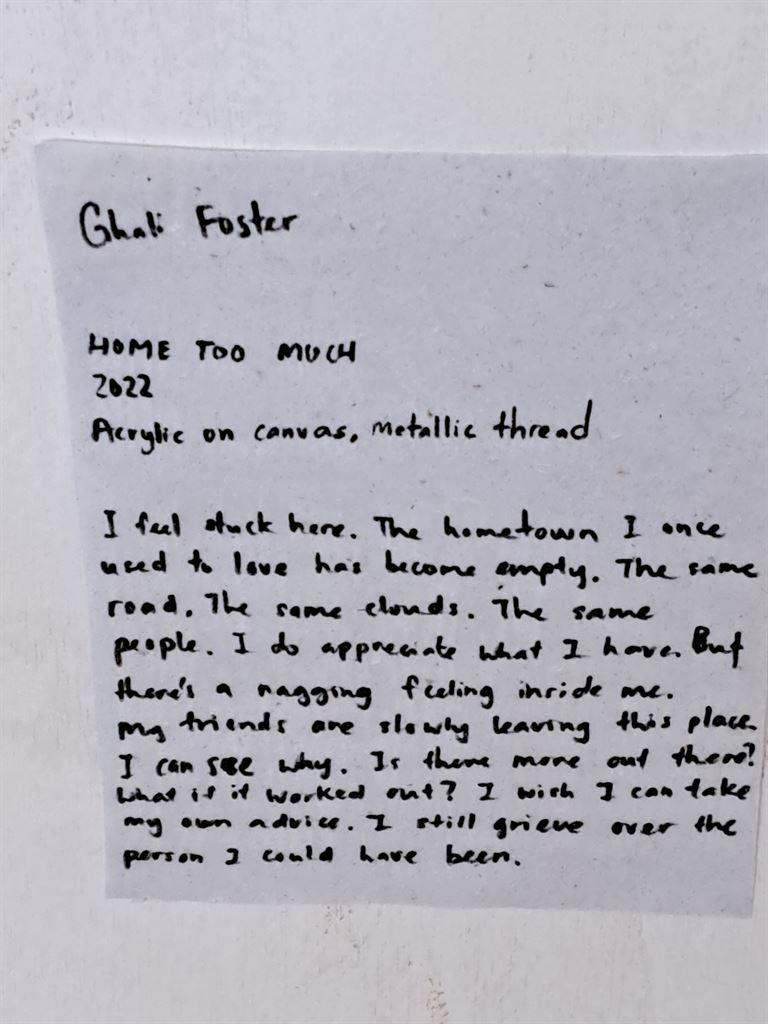 Ghali Foster
HOME TOO MUCH
2022
Acrylic on canvas, metallic thread
I feel stuck here. The hometown I once
used to love has become empty. The same
road. The same clouds. The same
people. I do appreciate what I have. But
there's a nagging feeling inside me.
my friends are slowly leaving this place.
I can see why. Is there more out there?
What if it worked out? I wish I can take
my own advice. I still grieve over the
person I could have been.